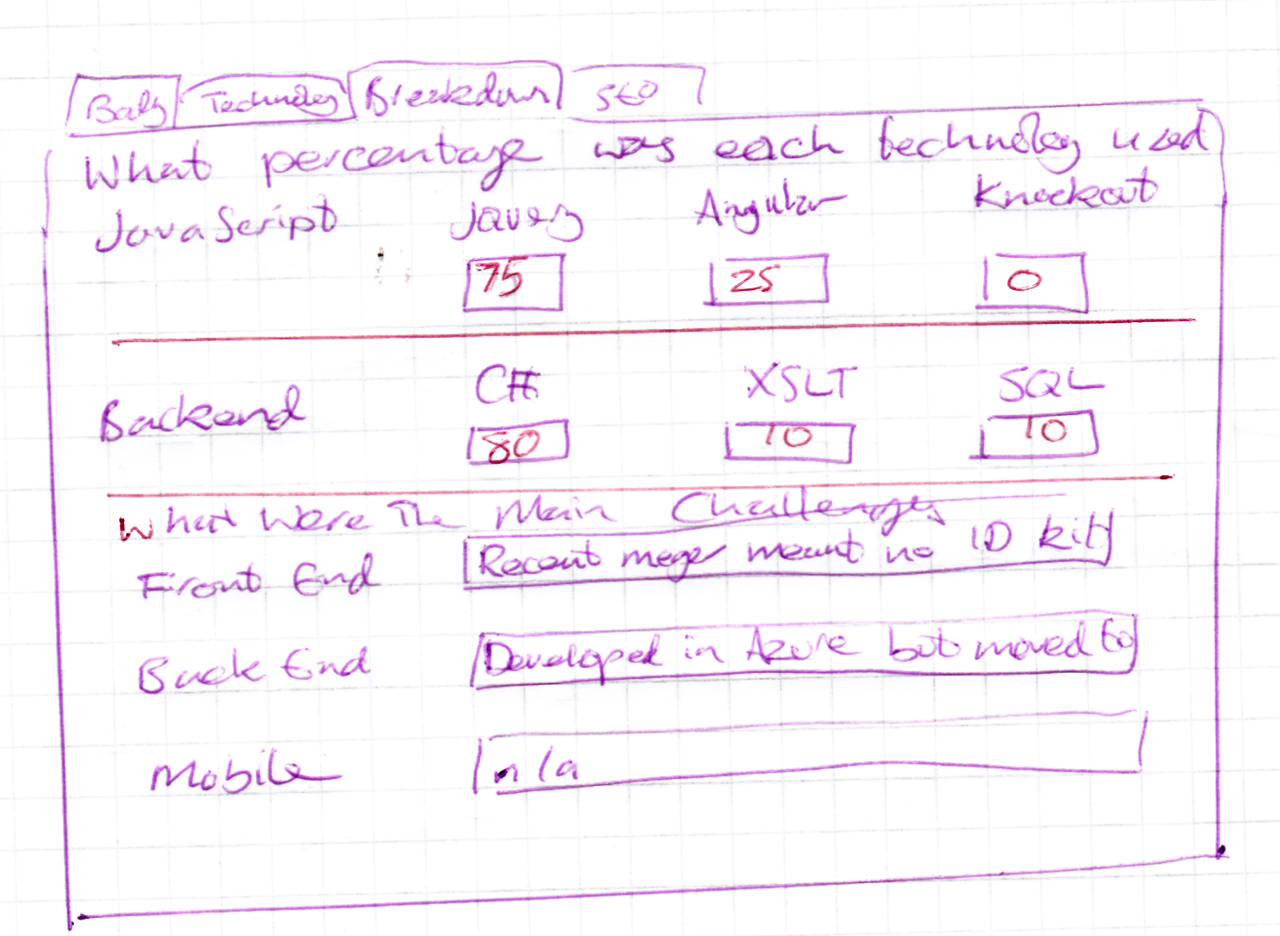 Body Technology Breakdown SEO
What percentage was each technology used
JavaScript Angular Knockout
75 25 0
Backend C# XSLT SQL
80 10 10
What Were The Main Challenges
Front End Recent meger meant no ID kit
Back End Developed in Azure but moved to
Mobile n/a